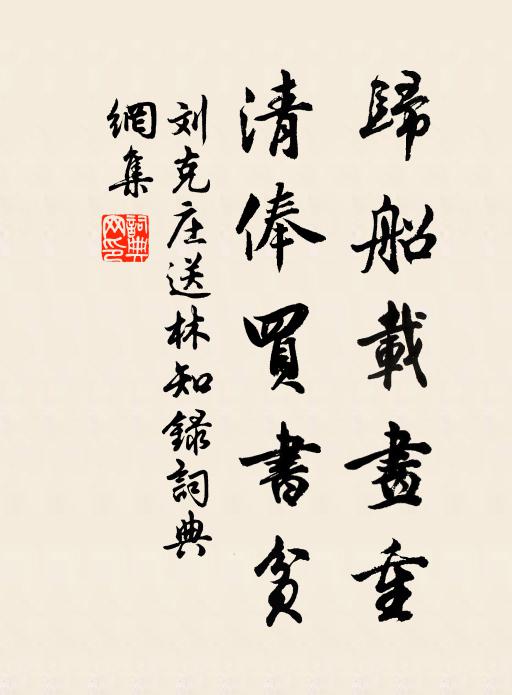 歸船載畫重
清俸買書貧
刘克庄送林知録詞典
網集
詞典網印